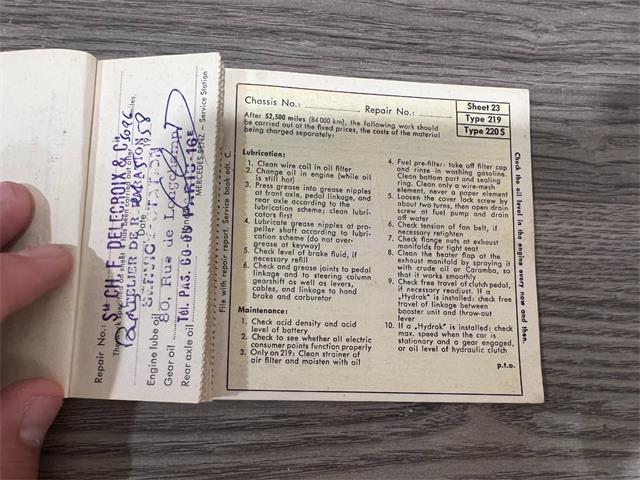 Chassis No.: Repair No.: Sheet 23
Type 219
Type 220 S
After 52,500 miles (84 000 km), the following work should
be carried out at the fixed prices, the costs of the material
being charged separately:
Lubrication:
1. Clean wire coil in oil filter
2. Change oil in engine (while oil
is still hot)
3. Press grease into grease nipples
at front axle, pedal linkage, and
rear axle according to the
lubrication scheme; clean lubri-
cators first
4. Lubricate grease nipples at pro-
peller shaft according to lubri-
cation scheme (do not over-
grease at keyway)
5. Check level of brake fluid, if
necessary refill
6. Check and grease joints to pedal
linkage and to steering column
gearshift as well as levers,
cables, and linkage to hand
brake and carburetor
Maintenance:
1. Check acid density and acid
level of battery
2. Check to see whether all electric
consumer points function properly
3. Only on 219: Clean strainer of
air filter and moisten with oil
4. Fuel pre-filter: take off filter cap
and rinse in washing gasoline.
Clean bottom part and sealing
ring. Clean only a wire-mesh
element, never a paper element
5. Loosen the cover lock screw by
about two turns, then open drain
screw at fuel pump and drain
off water
6. Check tension of fan belt, if
necessary retighten
7. Check flange nuts at exhaust
manifolds for tight seat
8. Clean the heater flap at the
exhaust manifold by spraying it
with crude oil or Caramba, so
that it works smoothly
9. Check free travel of clutch pedal,
if necessary readjust. If a
„Hydrak" is installed: check free
travel of linkage between
booster unit and throw-out
lever
10. If a „Hydrak" is installed: check
max. speed when the car is
stationary and a gear engaged,
or oil level of hydraulic clutch
p.t.o.
Check the oil level in the engine every now and then.
File with repair report. Service book edt. C.
Repair No.:
CH. F. DELECROIX & C
ATELIER DE RÉPARATION
Date 1958
Engine lube oil STATION
Gear oil 80, Rue de Longchamp
Rear axle oil Tél. PAS. PARIS-16E
MERCEDES-BENZ – Service Station